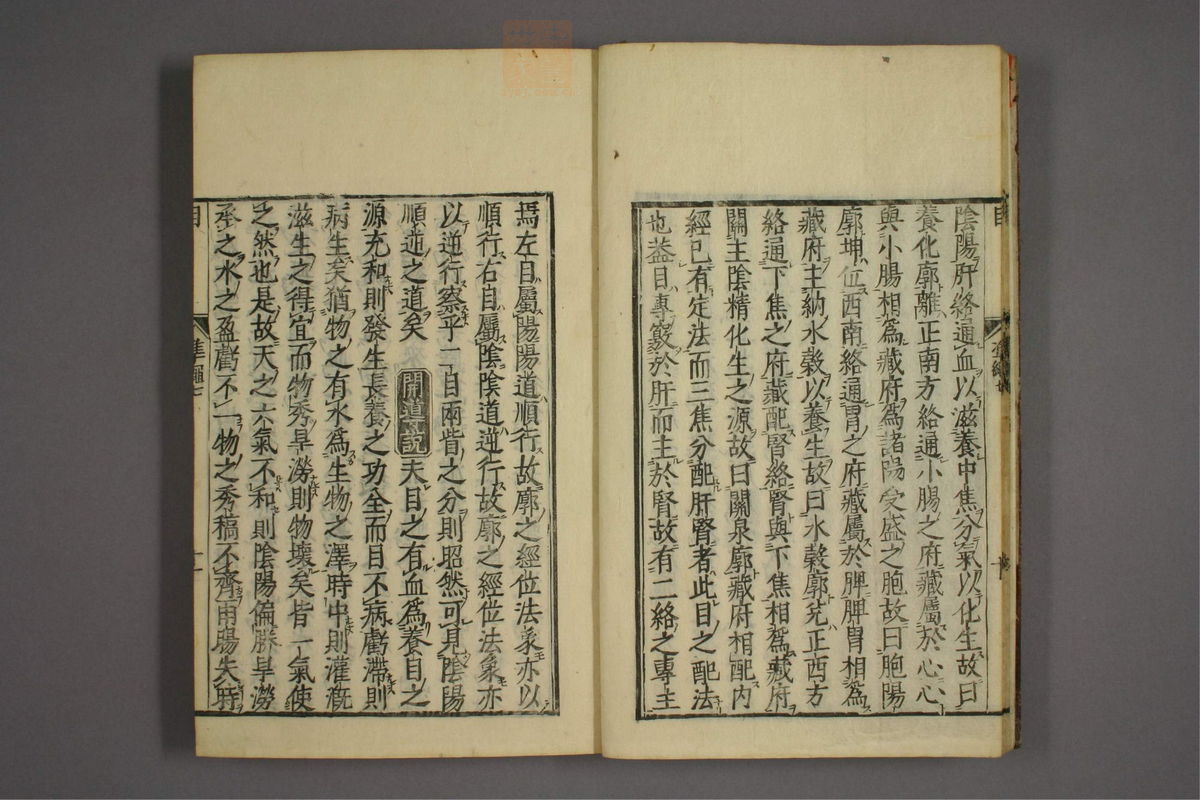 陰陽肝絡通血以滋養中焦分氣以化生故曰
養化廓離正南方絡通小腸之府藏屬於心心
與小腸相爲藏府爲諸陽受盛之胞故曰胞陽
廓坤位西南絡通胃之府藏屬於脾脾胃相爲
藏府主納水穀以養生故曰水穀廓兊正西方
絡通下焦之府藏配腎絡腎與下焦相爲藏府
關主陰精化生之源故曰關泉廓藏府相配内
經已有定法而三焦分配肝腎者此目之配法
也盖目專竅於肝而主於腎故有二絡之專主
焉左目屬陽陽道順行故廓之經位法象亦以
順行右目屬陰陰道逆行故廓之經位法象亦
以逆行察乎一目兩眥之分則昭然可見陰陽
順逆之道矣 開導説 夫目之有血爲養目之
源充和則發生長養之功全而目不病虧滯則
病生矣猶物之有水爲生物之澤時中則灌漑
滋生之得宜而物秀旱澇則物壞矣皆一氣使
之然也是故天之六氣不和則陰陽偏勝旱澇
承之水之盈虧不一物之秀稿不齊雨腸失時
目